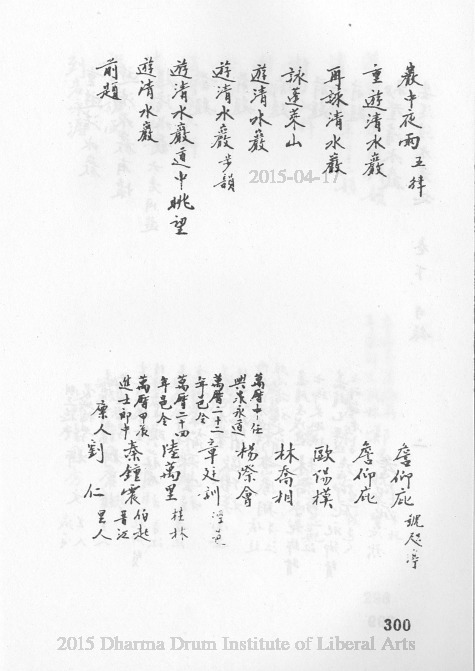 巖中夜雨五律
重遊清水巖
再詠清水巖
詠蓬萊山
遊清水巖
遊清水巖步韻
遊清水巖道中眺望
遊清水巖
前題
詹仰庇
詹仰庇
歐陽模
林喬相
萬曆中任興泉永道 楊際會
萬曆二十二年邑令 章廷訓
萬曆二十四年邑令 陸萬里 桂林
萬曆甲辰進士郎中 秦鐘震 伯起 晋江
廪人 劉仁 里人
2015-04-17
300
2015 Dharma Drum Institute of Liberal Arts